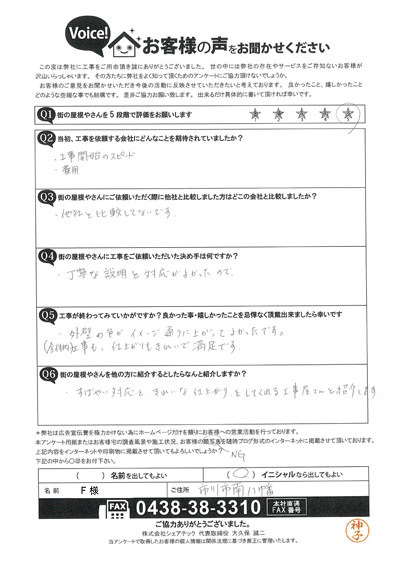 Voice! お客様の声をお聞かせください
この度は弊社に工事をご用命頂き誠にありがとうございました。世の中には弊社の存在やサービスをご存知ないお客様が
沢山いらっしゃいます。その方たちに弊社をよく知って頂くためのアンケートにご協力頂けないでしょうか。
お客様のご意見をお聞かせいただき今後の活動に反映させていただきたいと考えております。良かったこと、嬉しかったこと
どのような些細な事でも結構です。是非ご協力お願い致します。出来るだけ具体的に書いて頂ければ幸いです。
Q1 街の屋根やさんを5段階で評価をお願いします ★ ★ ★ ★ ★
Q2 当初、工事を依頼する会社にどんなことを期待されていましたか?
・工事開始のスピード
・費用
Q3 街の屋根やさんにご依頼いただく際に他社と比較しました方はどこの会社と比較しましたか?
・他社と比較してないです。
Q4 街の屋根やさんに工事をご依頼いただいた決め手は何ですか?
・丁寧な説明と対応がよかったので。
Q5 工事が終わってみていかがですか?良かった事・嬉しかったことを忌憚なく頂戴出来ましたら幸いです
・外壁の色がイメージ通りに上がってよかったです。
工事も、仕上がりもきれいで満足です。
Q6 街の屋根やさんを他の方に紹介するとしたらなんと紹介しますか?
・すばやい対応ときれいな仕上がりをしてくれる工事屋さんと紹介します
*弊社は広告宣伝費を極力かけない為にホームページだけを頼りにお客様への営業活動を行っております。
本アンケート用紙またはお客様宅の調査風景や施工状況、お客様の顔写真を随時ブログ形式のインターネットに掲載させて頂いております。
上記内容をインターネットや印刷物に掲載させて頂いてもよろしいでしょうか? NG
下記の中から○印をお付け下さい。
( ) 名前を出してもよい (○) イニシャルなら出してもよい
名前 F 様 ご住所 市川市南八幡
FAX 0438-38-3310 本社直通 FAX番号
ご協力ありがとうございました。
株式会社シェアテック 代表取締役 大久保 誠二
当アンケートで取得したお客様の個人情報は関係法規に基づき厳正に管理いたします。
神子